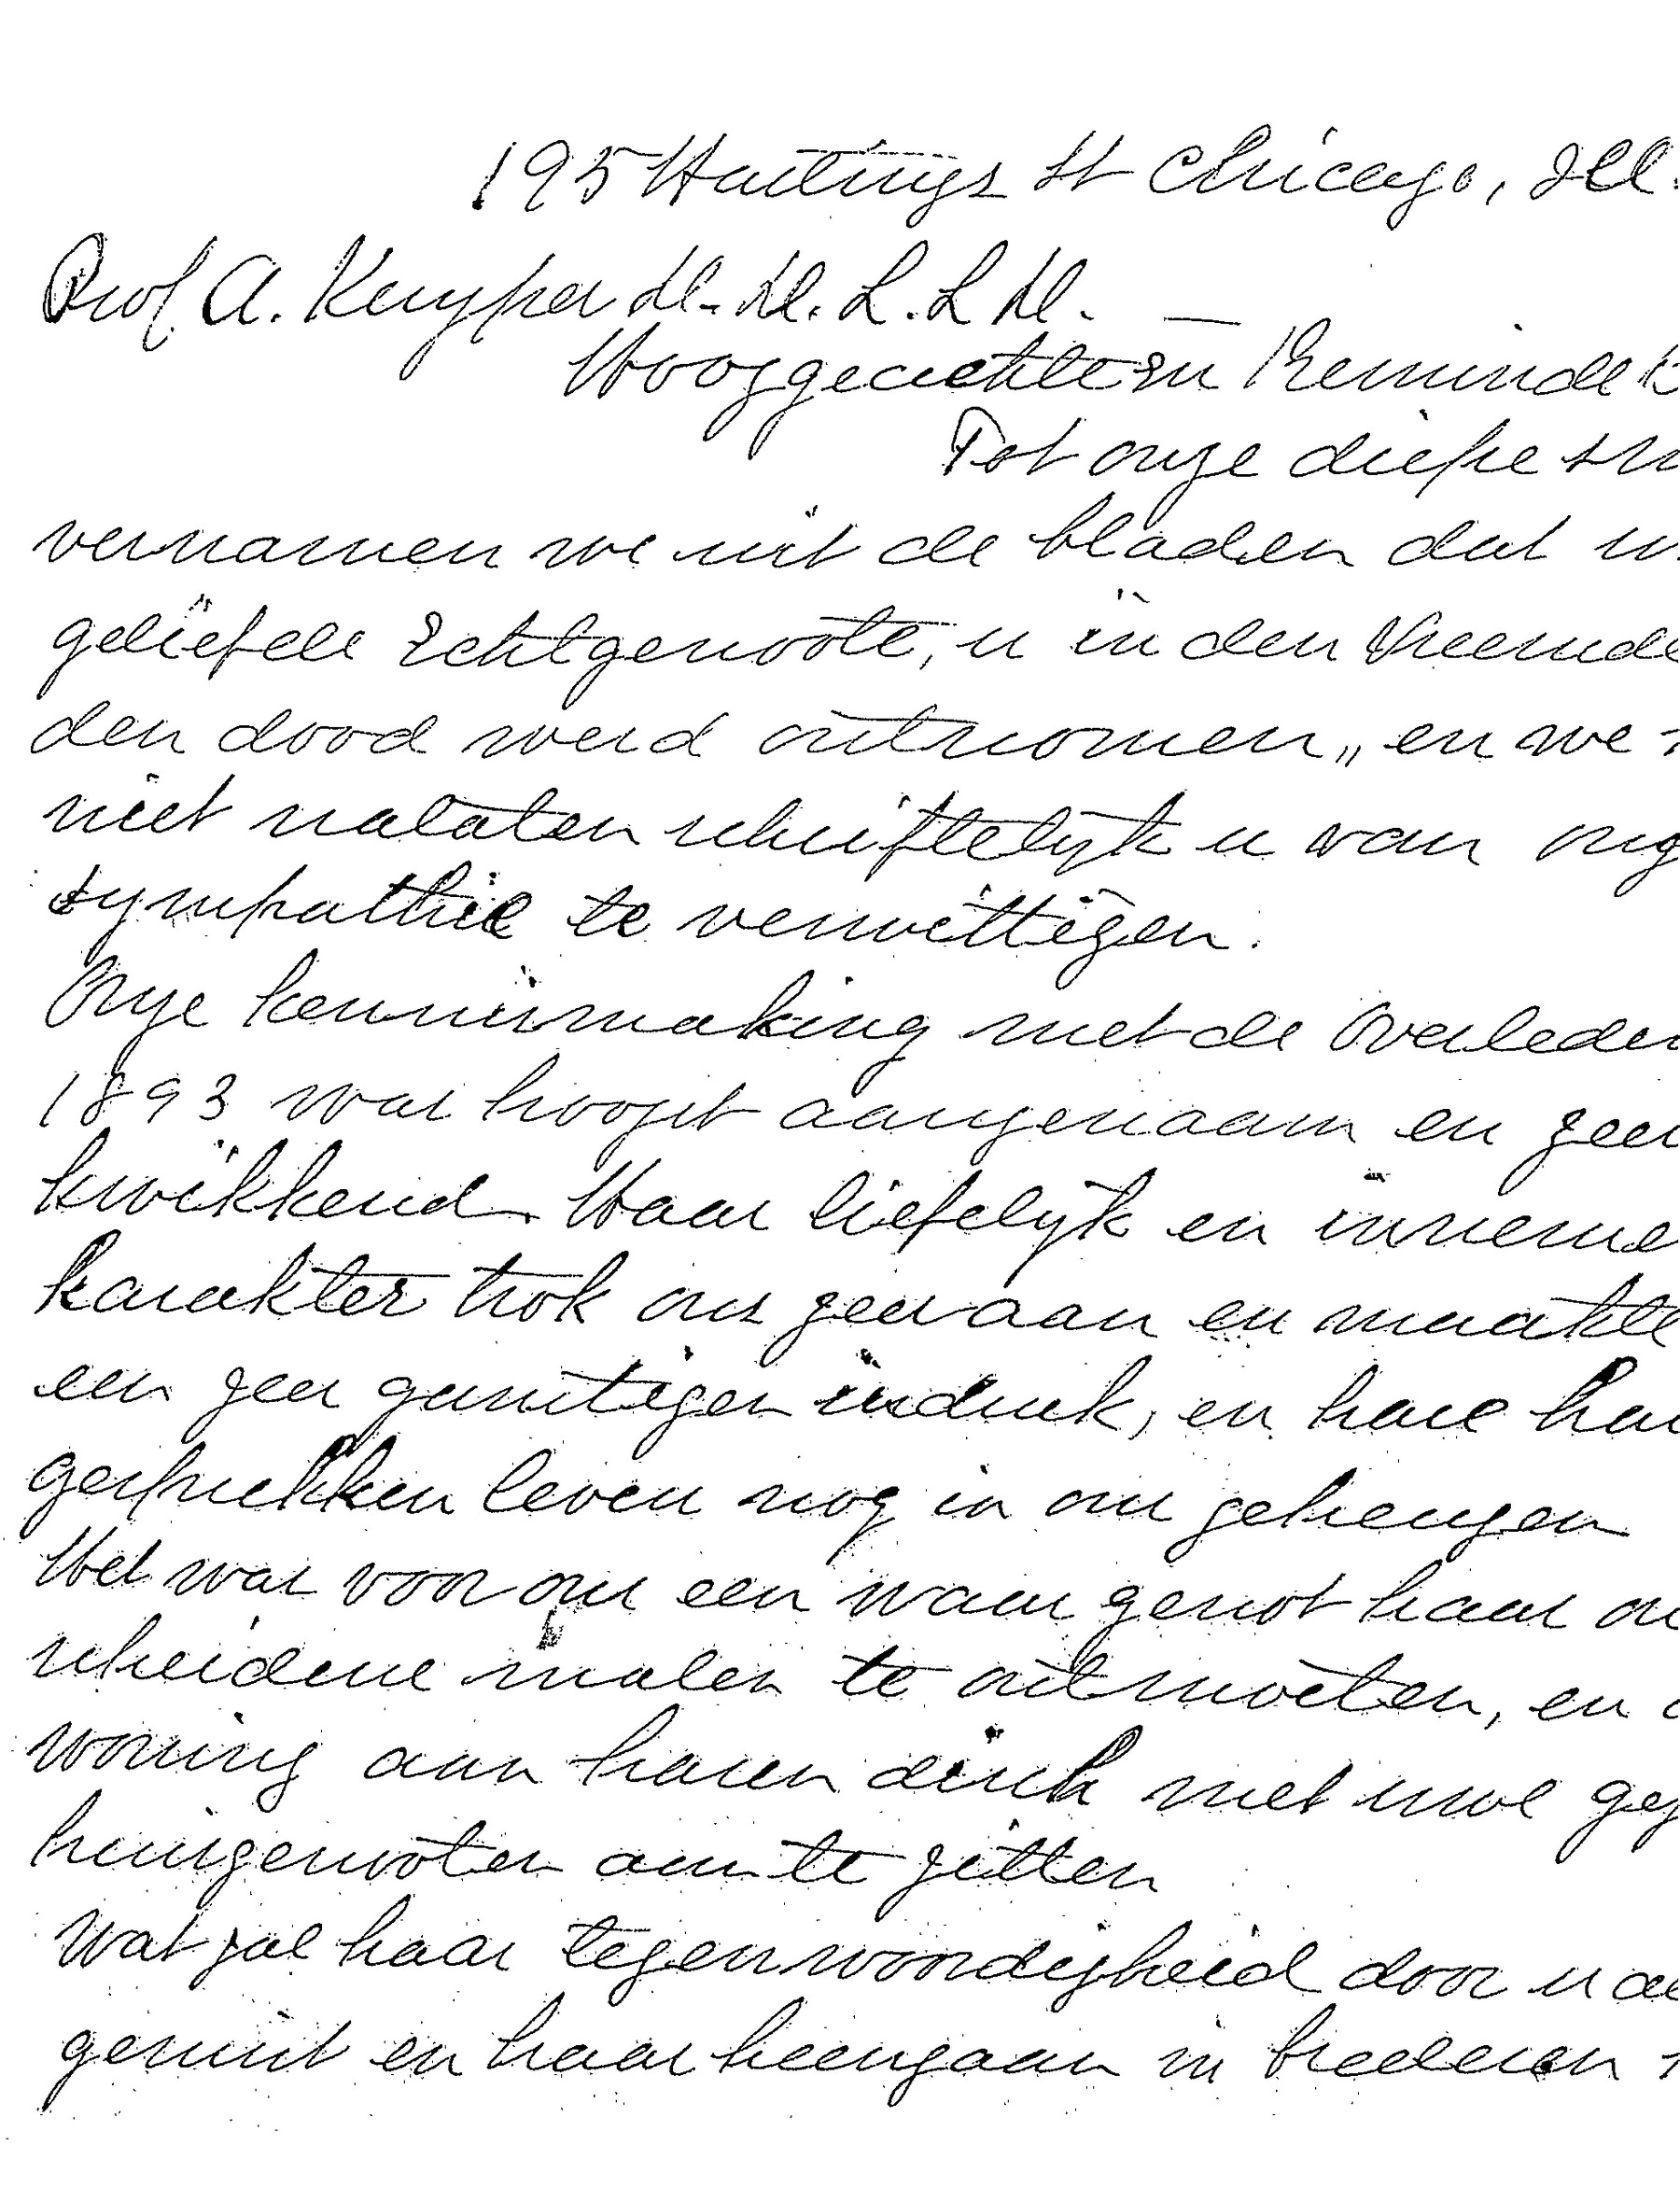 195 Hastings St Chicago, Ill.
Prof. A. Kuyper D.D. L.L.D. —
Hooggeachte en Beminde
Tot onze diepe
vernamen we uit de bladen dat
geliefde Echtgenoote, u in den Vreemde
den dood werd ontnomen,, en we
niet nalaten schriftelijk u van onz
sympathie te verwittigen.
Onze kennismaking met de Overleden
1893 was hoogst aangenaam en zeer
kwikkend. Haar liefelijk en inneme
karakter trok ons zeer aan en maakte
een zeer gunstigen indruk, en hare har
gesprekken leven nog in ons geheugen
Het was voor ons een waar genot haar on
scheidene malen te ontmoeten, en
woning aan haren disch met uwe ge
huisgenooten aan te zitten
Wat zal haar tegenwoordigheid door u
gemist en haar heengaan in breederen